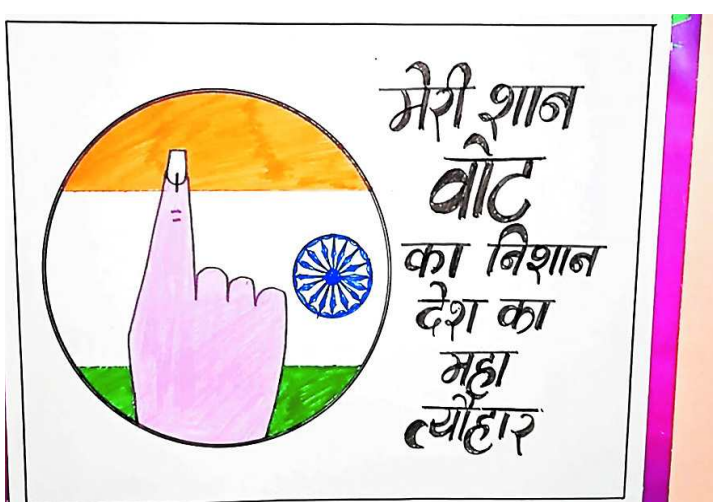 मेरी शान
वोट
का निशान
देश का
महा
त्यौहार